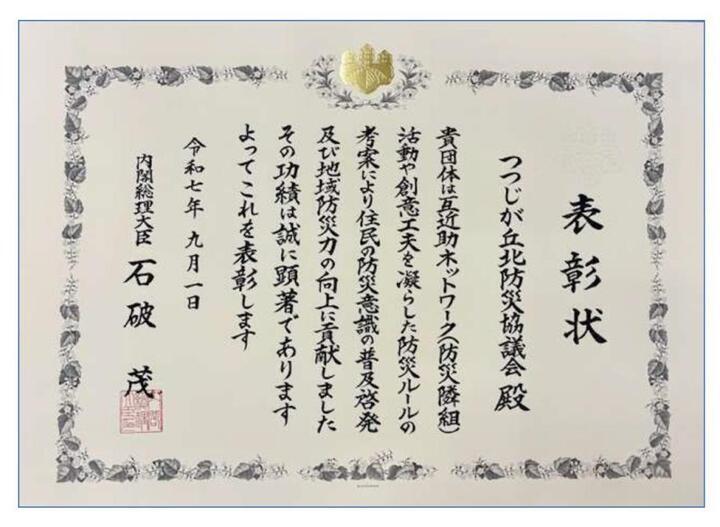 表彰状
つつじが丘北防災協議会 殿
貴団体は互近助ネットワーク(防災隣組)
活動や創意工夫を凝らした防災ルールの
考案により住民の防災意識の普及啓発
及び地域防災力の向上に貢献しました
その功績は誠に顕著であります
よってこれを表彰します
令和七年 九月一日
内閣総理大臣 石破 茂